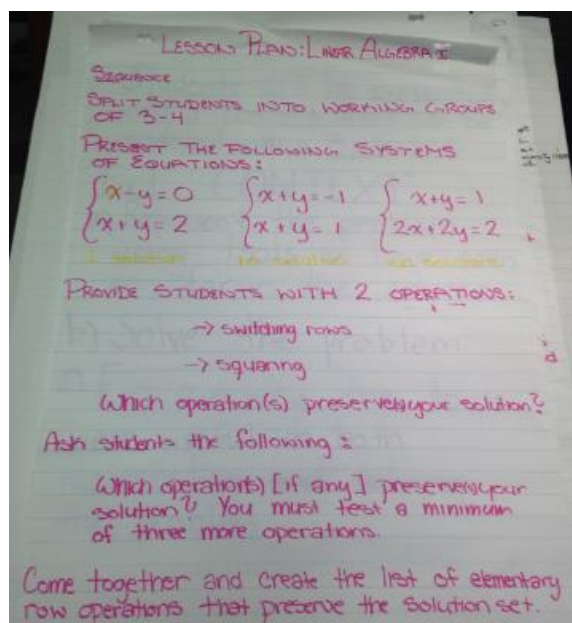 LESSON PLAN: LINEAR ALGEBRA I
SEQUENCE
SPLIT STUDENTS INTO WORKING GROUPS
OF 3-4
PRESENT THE FOLLOWING SYSTEMS
OF EQUATIONS:
x-y=0 x+y=-1 x+y=1
x+y=2 x+y=1 2x+2y=2
1 solution no solution ∞ solutions
PROVIDE STUDENTS WITH 2 OPERATIONS:
→ switching rows
→ squaring
Which operation(s) preserve(s) your solution?
Ask students the following:
Which operation(s) [if any] preserve(s) your
solution? You must test a minimum
of three more operations.
Come together and create the list of elementary
row operations that preserve the solution set.